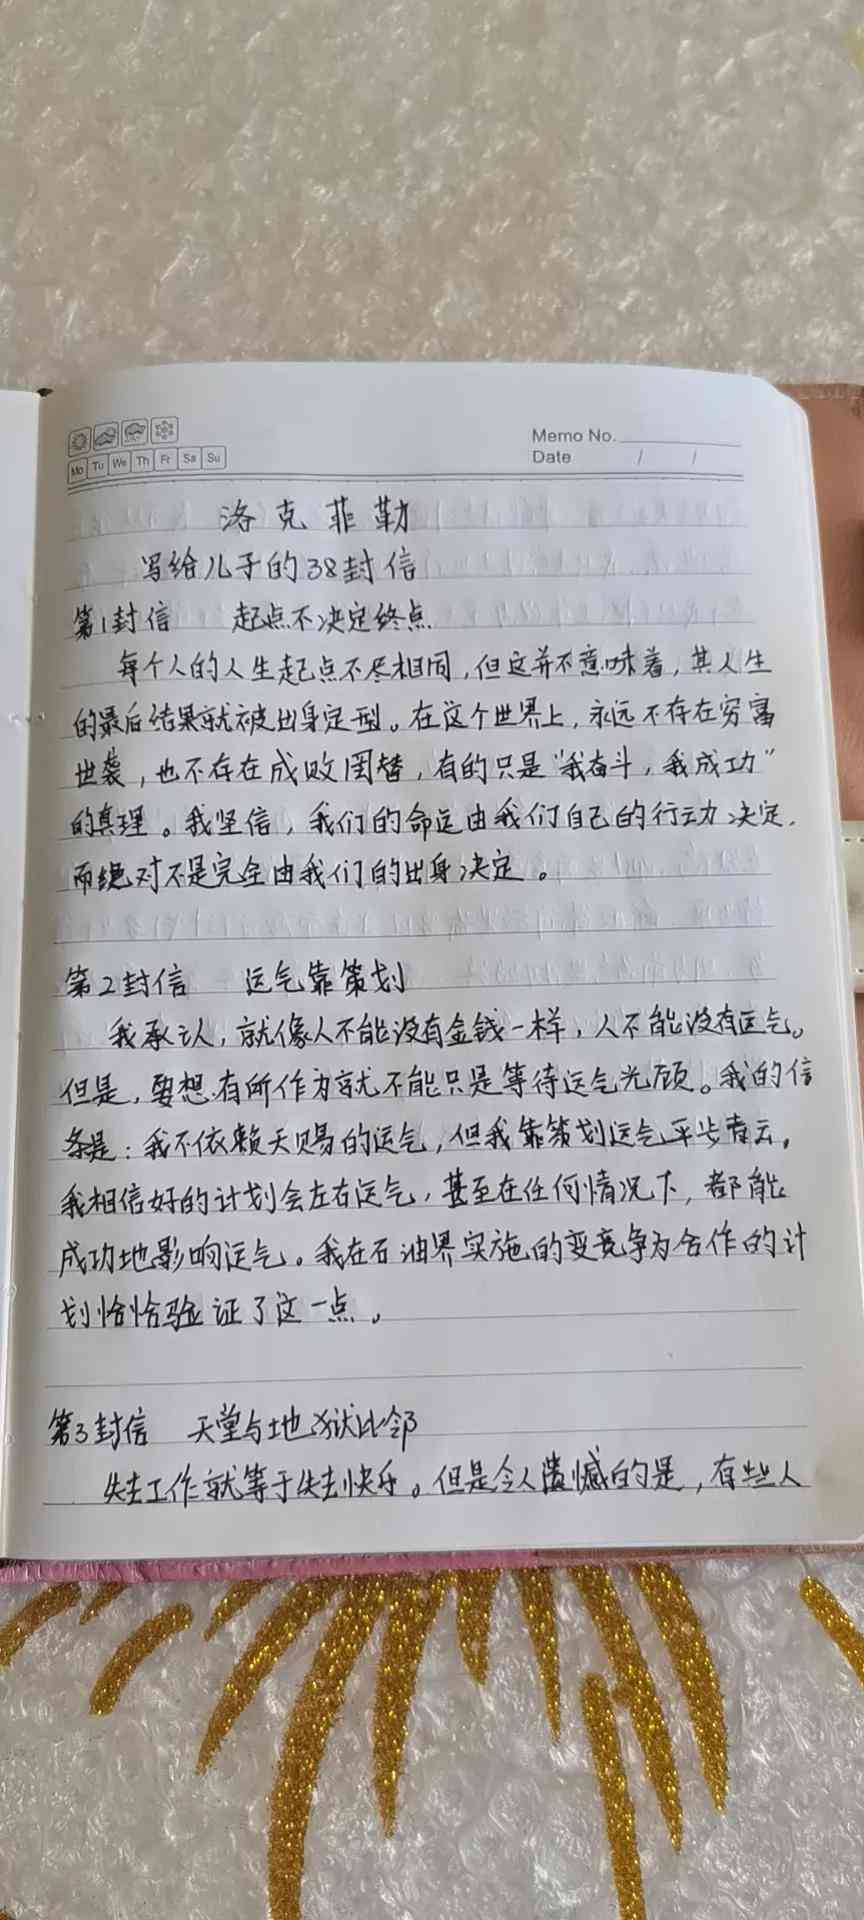 Memo No.
Date / /
Mo Tu We Th Fr Sa Su
洛克菲勒
写给儿子的38封信
第1封信 起点不决定终点
每个人的人生起点不尽相同,但这并不意味着,其人生
的最后结果就被出身定型。在这个世界上,永远不存在穷富
世袭,也不存在成败固替,有的只是“我奋斗,我成功”
的真理。我坚信,我们的命运由我们自己的行动决定,
而绝对不是完全由我们的出身决定。
第2封信 运气靠策划
我承认,就像人不能没有金钱一样,人不能没有运气。
但是,要想有所作为就不能只是等待运气光顾。我的信
条是:我不依赖天赐的运气,但我靠策划运气平步青云。
我相信好的计划会左右运气,甚至在任何情况下,都能
成功地影响运气。我在石油界实施的变竞争为合作的计
划恰恰验证了这一点。
第3封信 天堂与地狱比邻
失去工作就等于失去快乐。但是令人遗憾的是,有些人